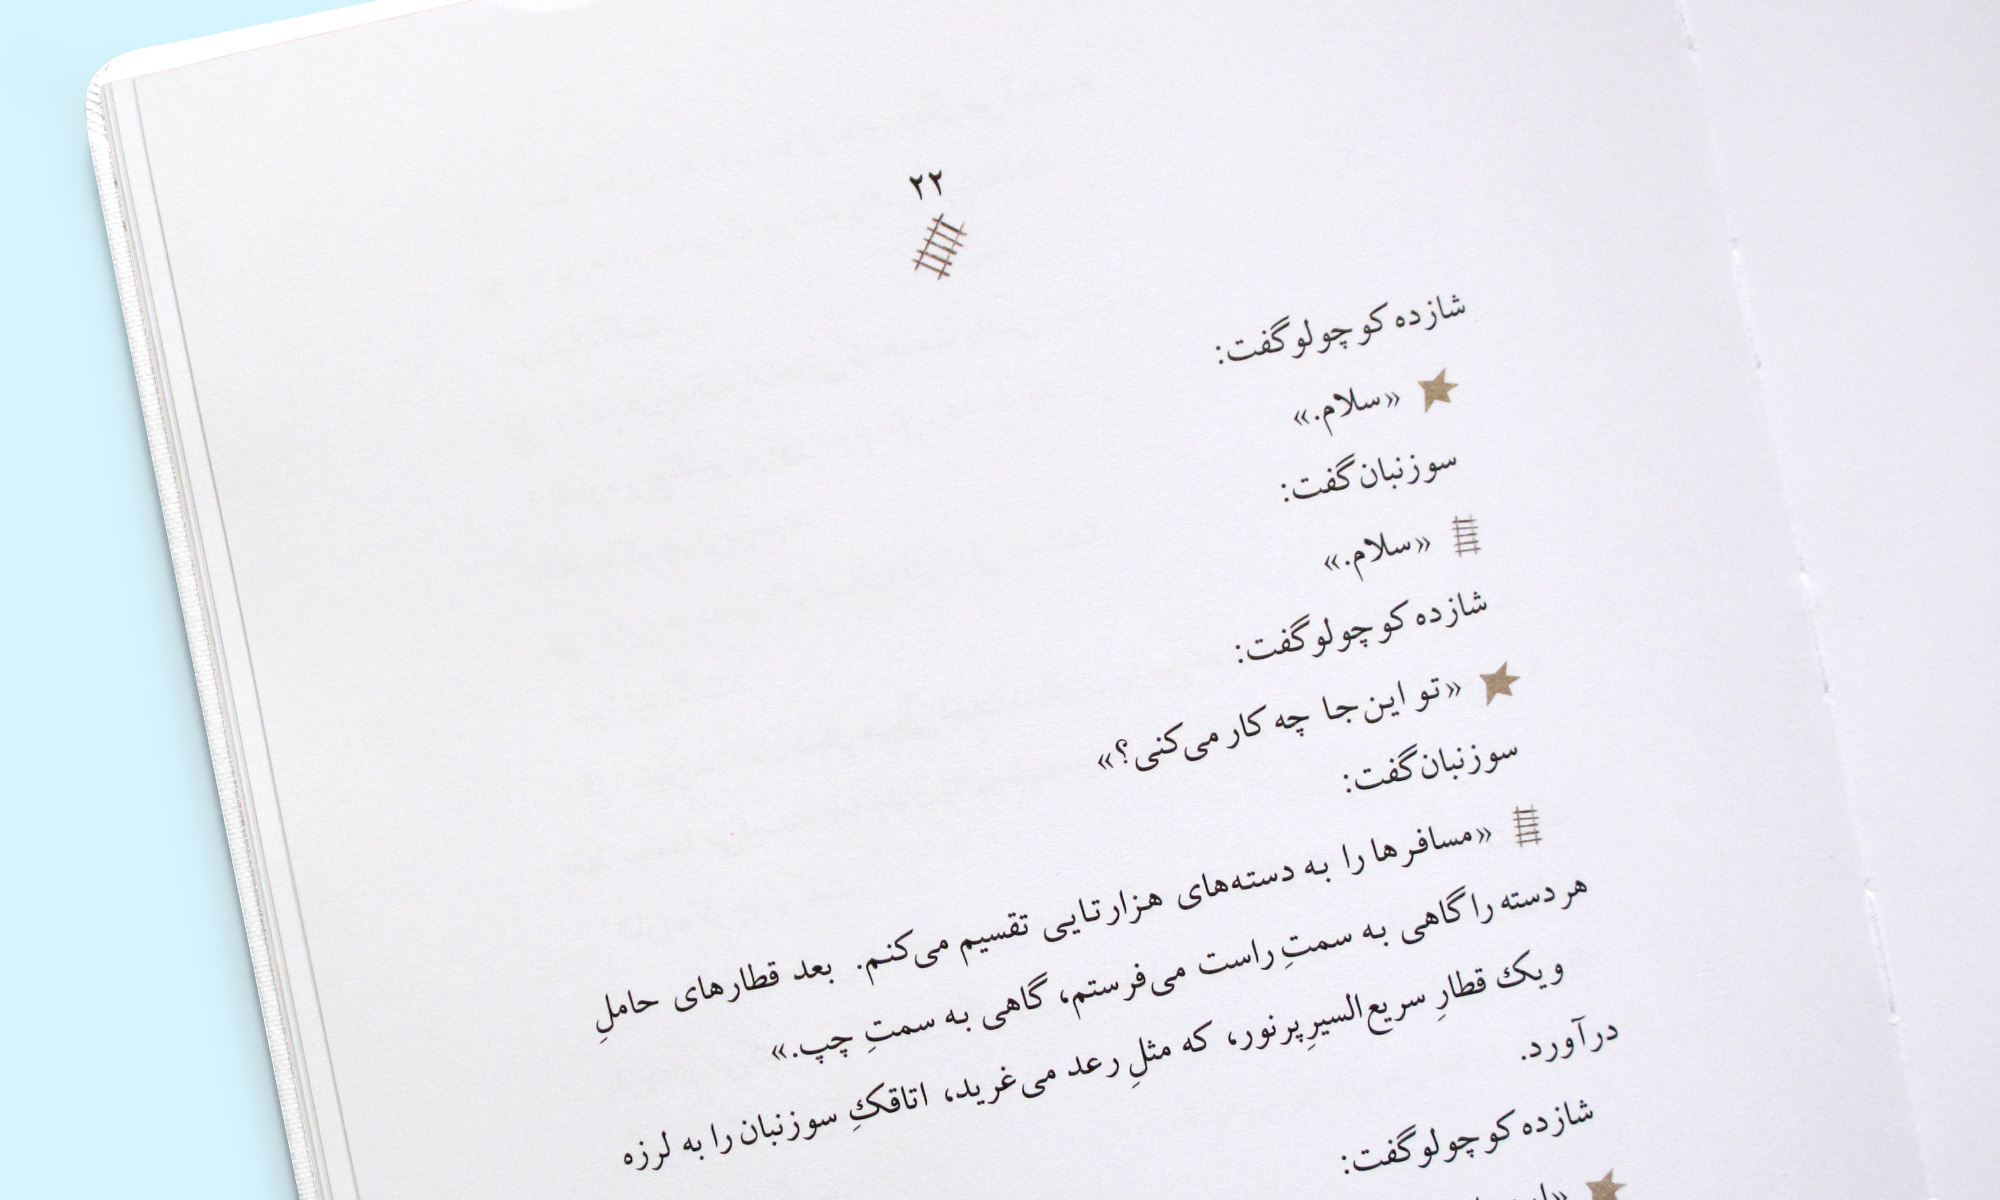 ۲۲
شازده کوچولو گفت:
«سلام.»
سوزنبان گفت:
«سلام.»
شازده کوچولو گفت:
«تو این‌جا چه کار می‌کنی؟»
سوزنبان گفت:
«مسافرها را به دسته‌های هزارتایی تقسیم می‌کنم. بعد قطارهای حاملِ
هر دسته را گاهی به سمتِ راست می‌فرستم، گاهی به سمتِ چپ.»
و یك قطارِ سریع‌السیرِ پرنور، که مثلِ رعد می‌غرید، اتاقكِ سوزنبان را به لرزه
درآورد.
شازده کوچولو گفت: